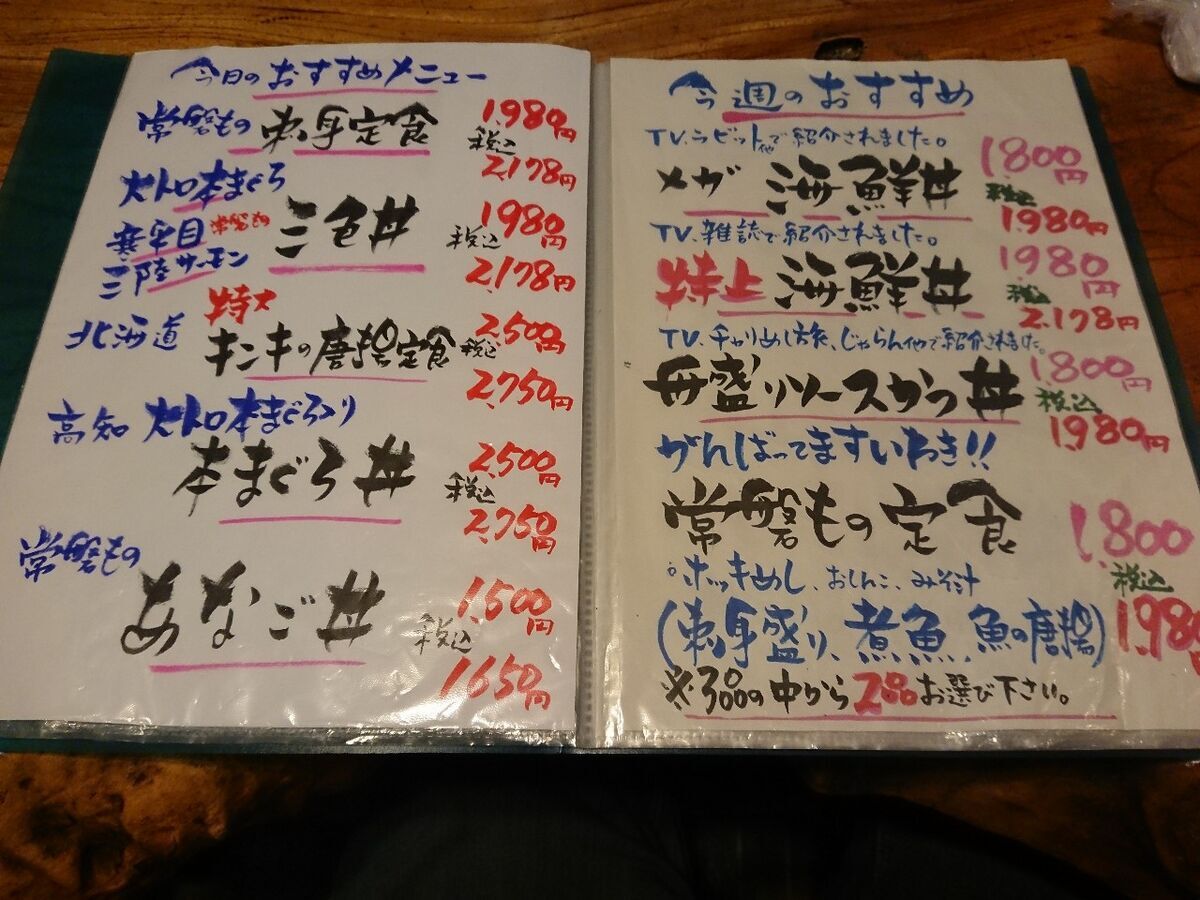 今日のおすすめメニュー
常磐もの 刺身定食 1,980円
税込 2,178円
大トロ本まぐろ
寒平目 常磐もの 三色丼 1,980円
三陸サーモン 税込 2,178円
特大
北海道 キンキの唐揚定食 2,500円
税込 2,750円
高知 大トロ本まぐろ入り
本まぐろ丼 2,500円
税込 2,750円
常磐もの
めなご丼 1,500円
税込 1,650円
今週のおすすめ
TV、ラビット他で紹介されました。
メガ 海鮮丼 1,800円
税込 1,980円
TV、雑誌で紹介されました。
特上 海鮮丼 1,980円
税込 2,178円
TV、チャリめし旅、じゃらん他で紹介されました。
舟盛りソースかつ丼 1,800円
税込 1,980円
がんばってますいわき!!
常磐もの定食 1,800
税込 1,98
。ホッキめし、おしんこ、みそ汁
(刺身盛り、煮魚、魚の唐揚)
※3品の中から2品お選び下さい。